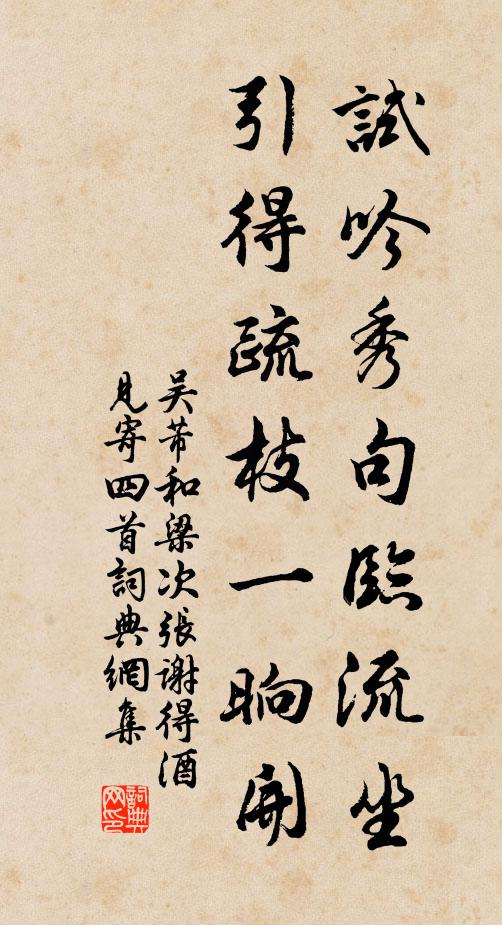 試吟秀句臨流坐
引得疏枝一晌開
吴芾和梁次張謝得酒
見寄四首詞典網集
詞典
网印